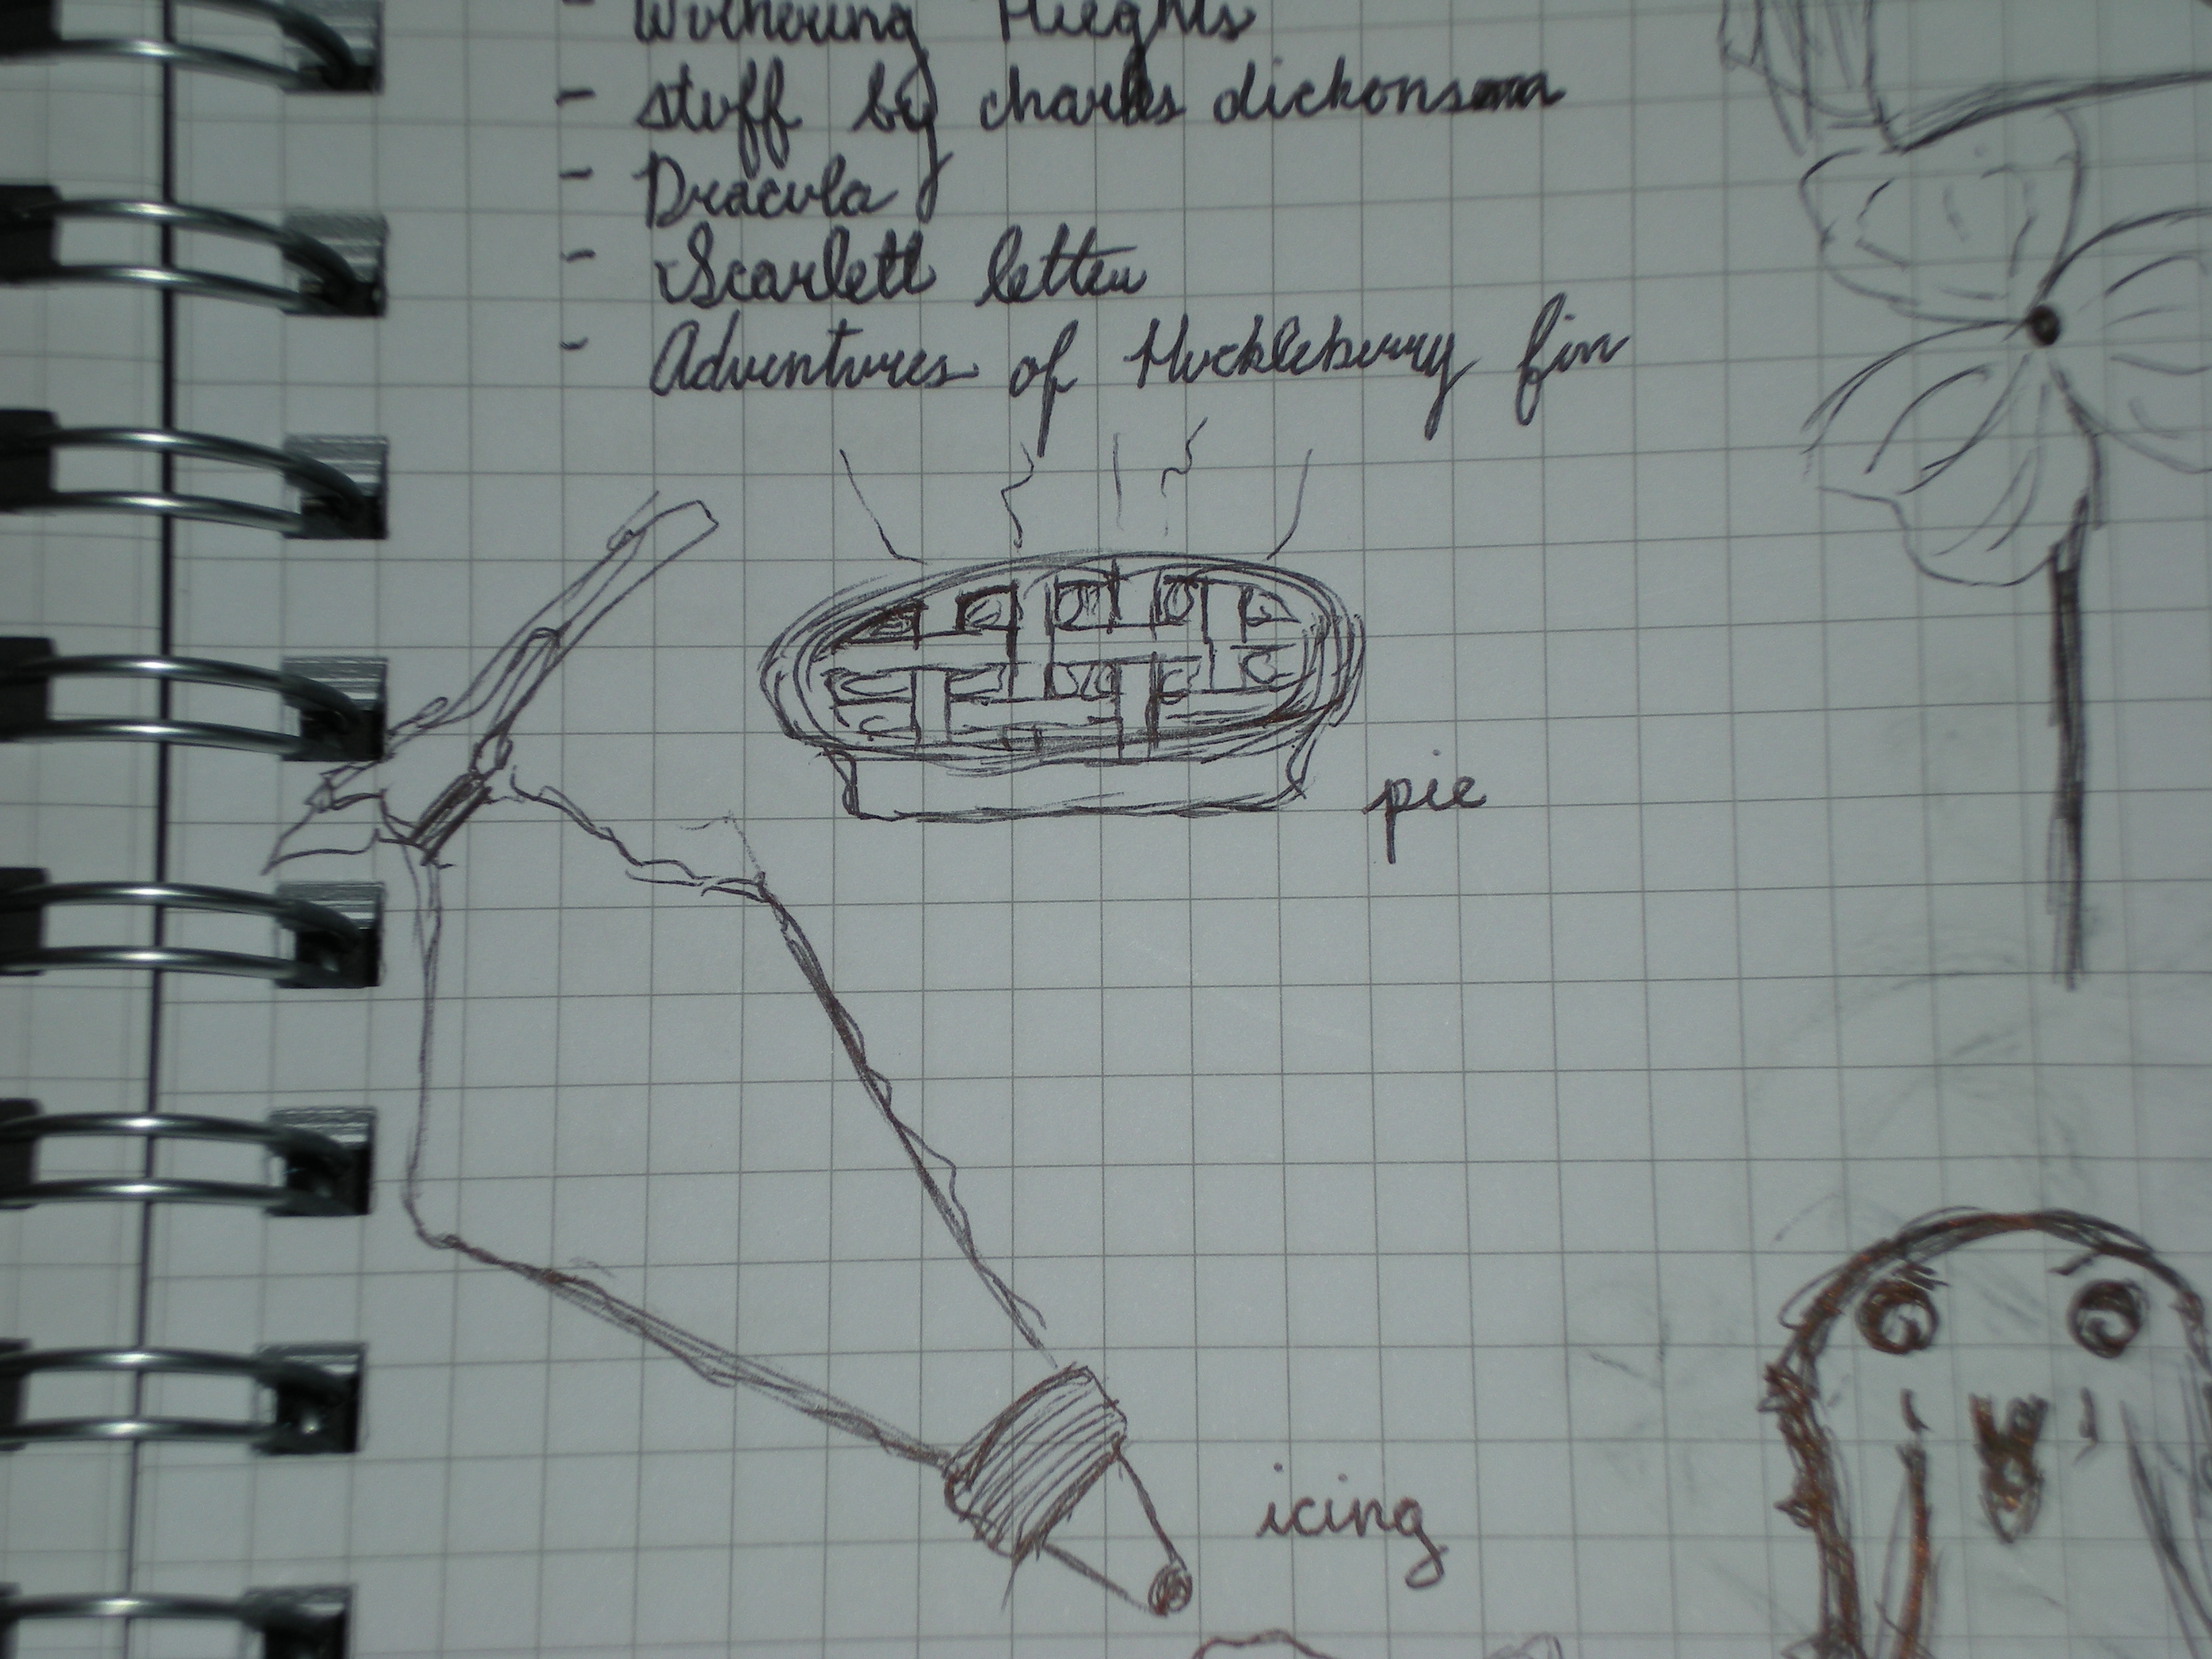 - Wuthering Heights
- stuff by charles dickons
- Dracula
- Scarlett letter
- Adventures of Huckleberry fin
pie
icing